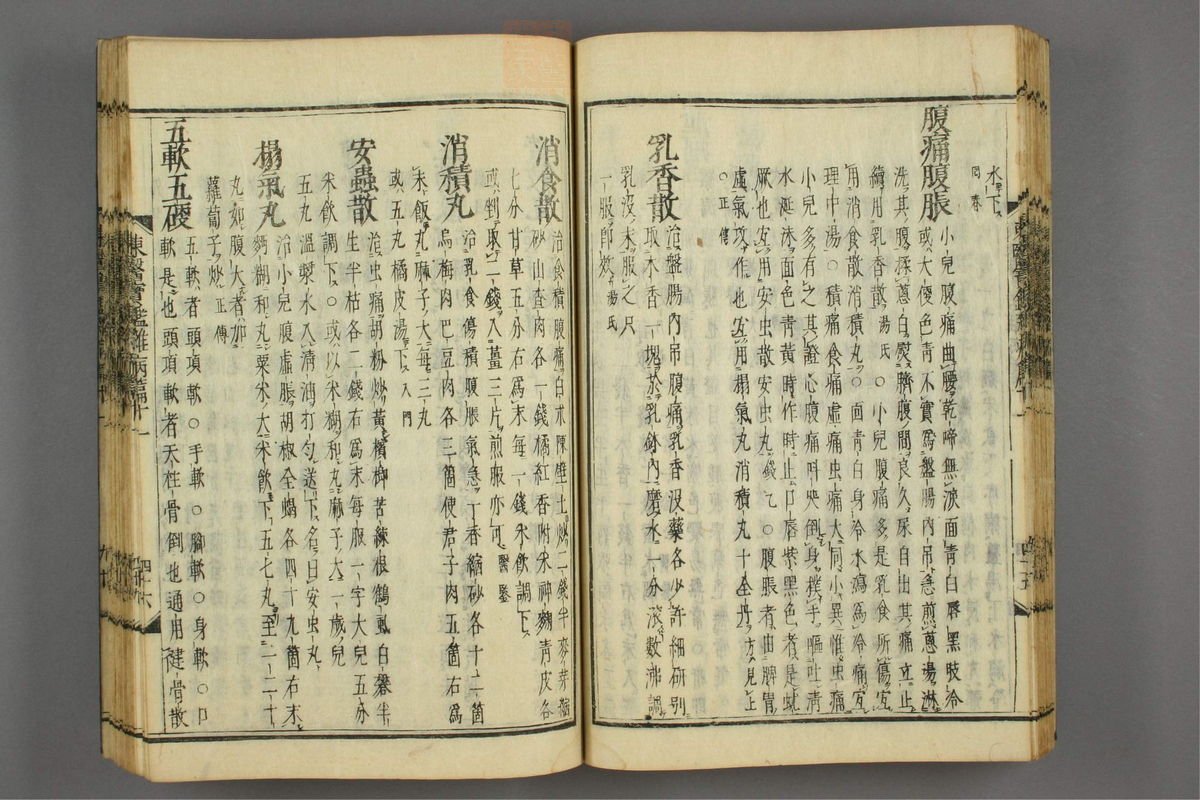 水下
同春
腹痛腹脹
小兒腹痛曲腰乾啼無淚面青白唇黑肢冷
或大便色青不實爲盤腸內吊急煎蔥湯淋
洗其腹揉蔥白熨臍腹間良久尿自出其痛立止
續用乳香散湯氏○小兒腹痛多是乳食所傷宜
用消食散消積丸○面青白身冷水瀉爲冷痛宜
理中湯○積痛食痛虛痛虫痛大同小異惟虫痛
小兒多有之其證心腹痛叫哭倒身撲手嘔吐清
水涎沫面色青黃時作時止口唇紫黑色者是蚘
厥也宜用安虫散安虫丸錢乙○腹脹者由脾胃
虛氣攻作也宜用榻氣丸消積丸十全丹方見上
○正傳
乳香散
治盤腸內吊腹痛乳香沒藥各少許細硏別
取木香一塊於乳鉢內磨水一分滾數沸調
乳沒末服之只
一服卽效湯氏
消食散
治食積腹痛白朮陳壁土炒二錢半麥芽縮
砂山査肉各一錢橘紅香附米神麴靑皮各
七分甘草五分右爲末每一錢米飲調下
或剉取一錢入薑三片煎服亦可醫鑒
消積丸
治乳食傷積腹脹氣急丁香縮砂各十二箇
烏梅肉巴豆肉各三箇使君子肉五箇右爲
末飯丸麻子大每三丸
或五丸橘皮湯下入門
安蟲散
治虫痛胡粉炒黃檳榔苦練根鶴虱白礬半
生半枯各二錢右爲末每服一字大兒五分
米飲調下○或以米糊和丸麻子大一歲兒
五丸溫漿水入淸油打勻送下名曰安虫丸
榻氣丸
治小兒腹虛脹胡椒全蝎各四十九箇右末
麪糊和丸粟米大米飲下五七丸至二三十
丸如腹大者加
蘿蔔子炒正傳
五軟五硬
五軟者頭項軟○手軟○脚軟○身軟○口
軟是也頭項軟者天柱骨倒也通用健骨散
東醫寶鑑雜病篇十一
四十六